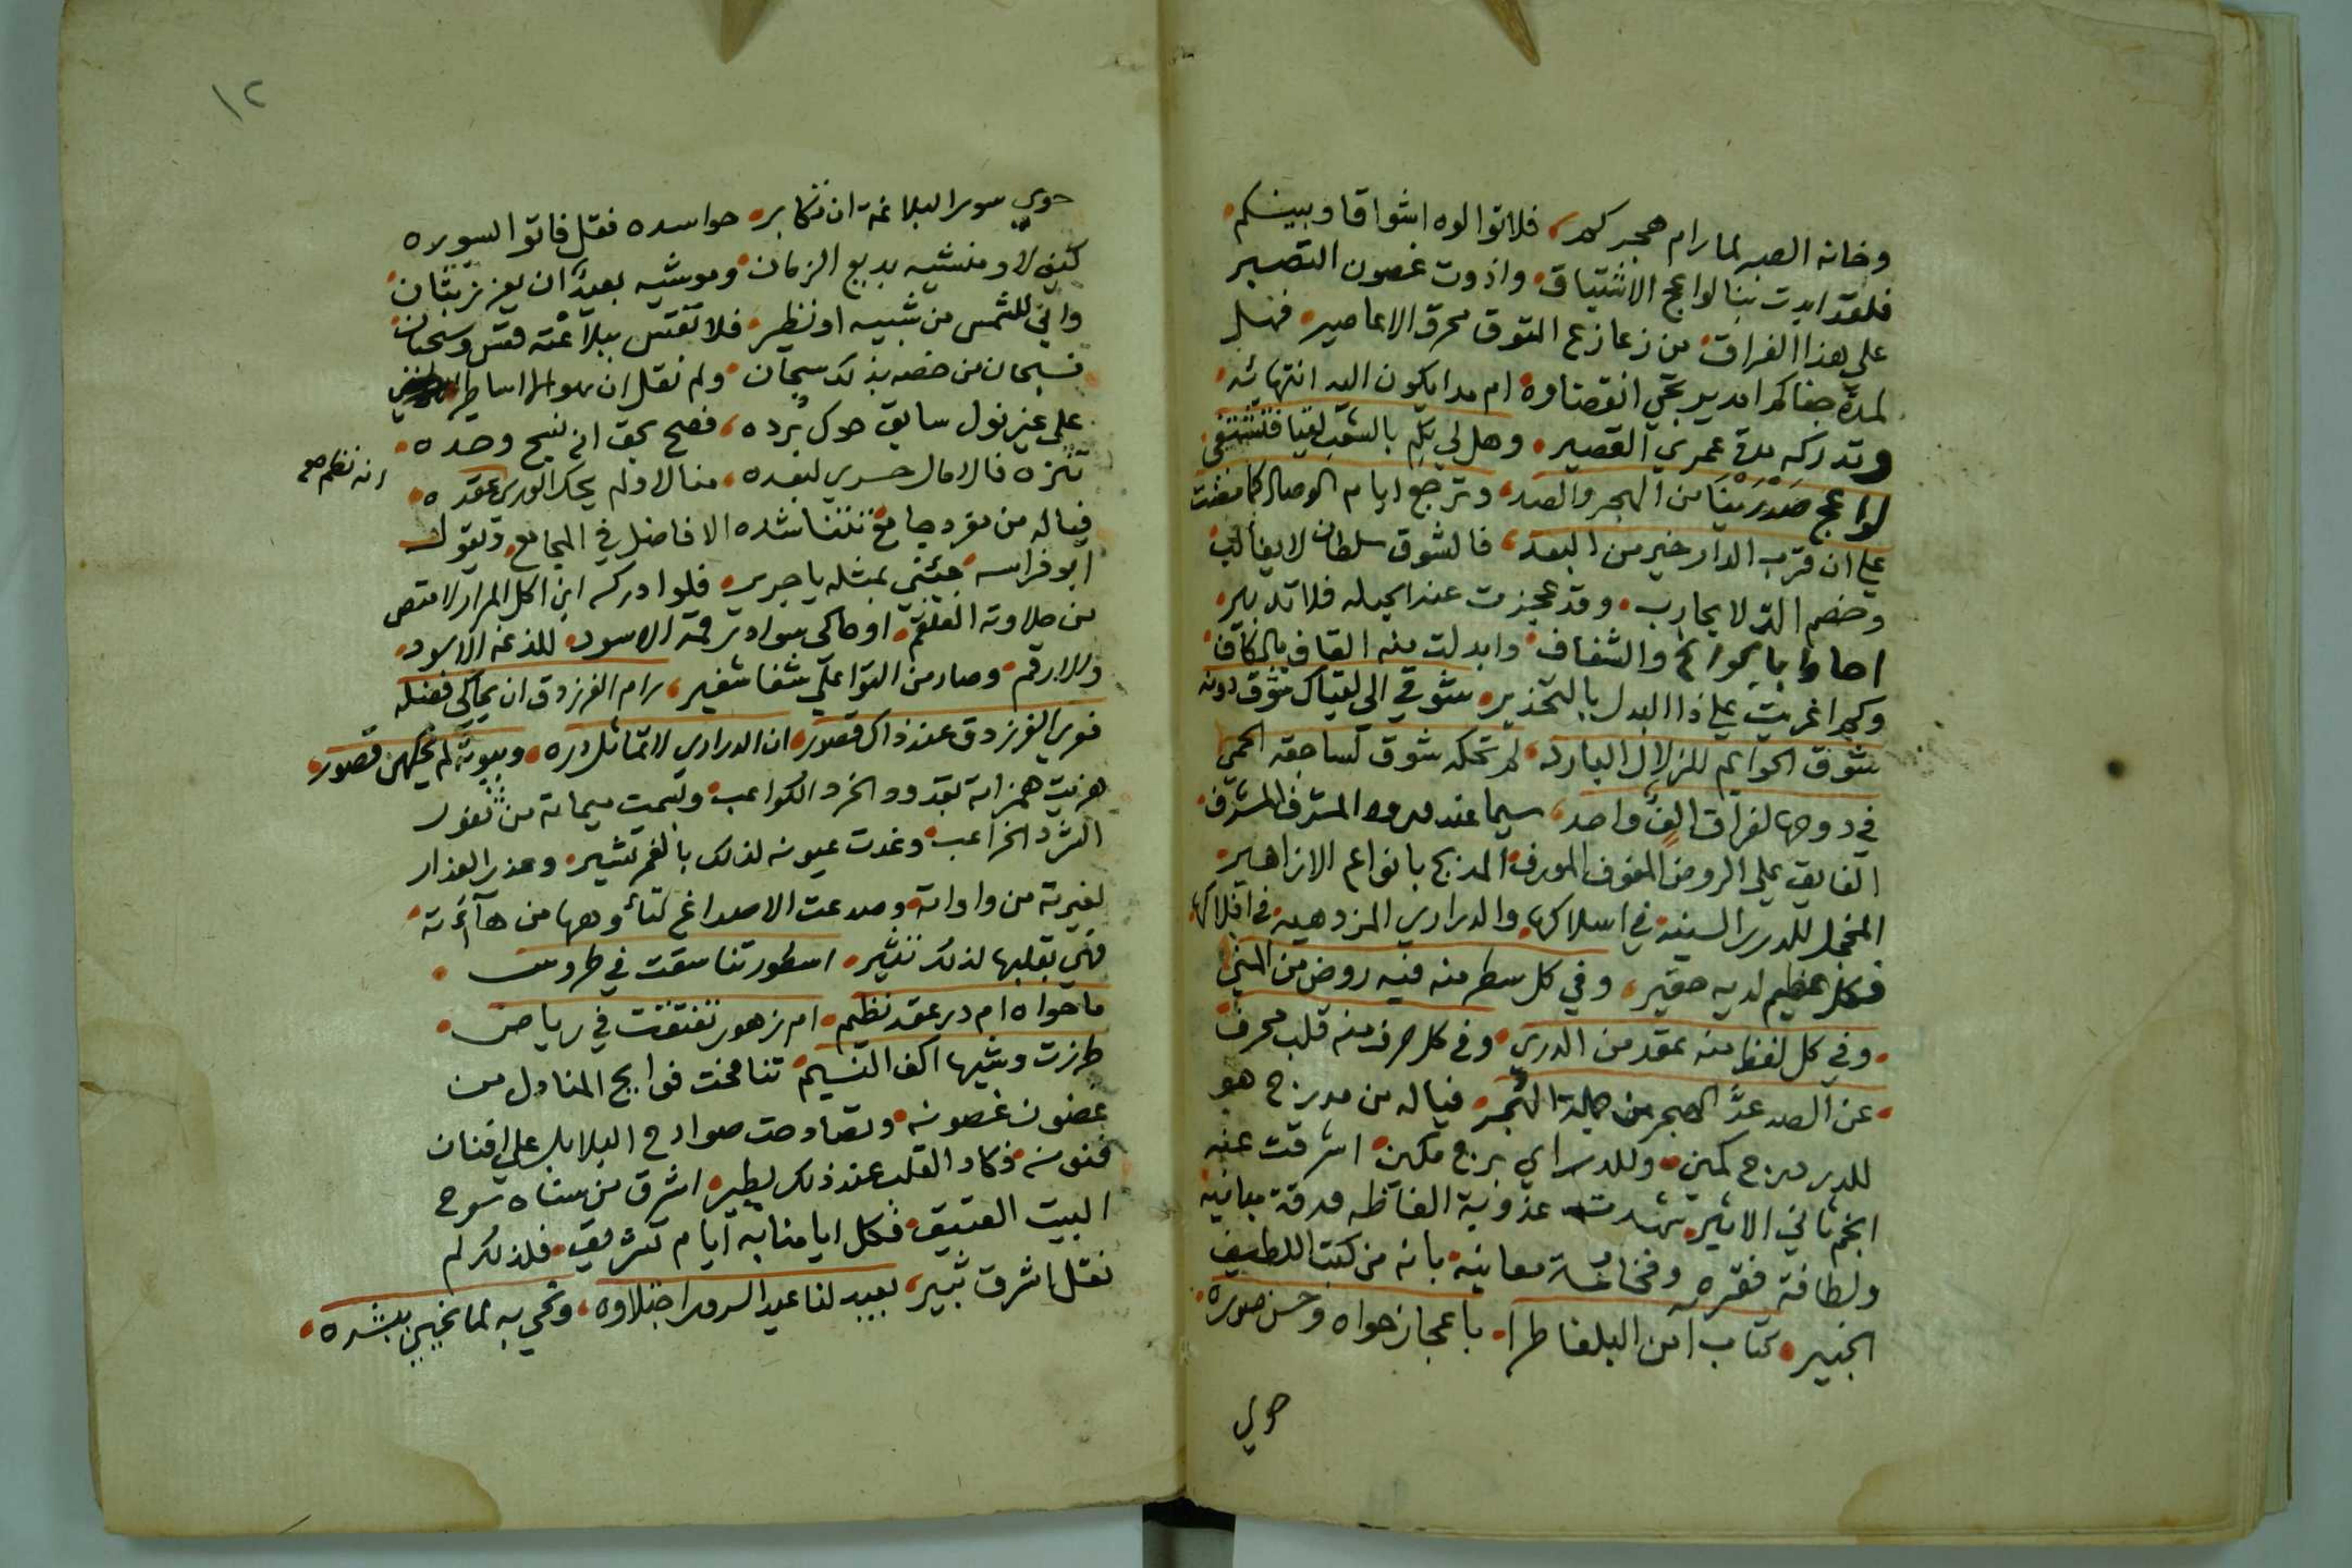 وخانه الصبر لما رام هجركم، فلا توالوه اشواقا وبينكم
فلقد ابدت بنا لواعج الاشتياق، واذوت غصون التصبر
على هذا الفراق، من زعازع التوق محرق الاعاصير، فهل
لمدة جفاكم امد يرتجي انقضاوه، ام مدا يكون اليه انتهائه
وتدركه مدة عمري القصير، وهل لي بكم بالشعب لقيا فتشتفي
لواعج صدرينا من الهجر والصد، وترجع ايام الوصال كما مضت
على ان قرب الدار خير من البعد، فالشوق سلطان لا يغالب
وخصم الد لا يحارب، وقد عجزت عند الحيله فلا تدبير
احاط بالجوانح والشغاف، وابدلت منه القاف بالكاف
وكم اغريت على ذا البدل بالتحذير، شوقي الى لقياك شوق دونه
شوق الحوايم للزلال البارد، لم تحكه شوق لساجعة الحمى
في دوحها لفراق الف واحد، سيما عند ورود المشرف المشرف
الفايق على الروض المفوف المورف، المدبج بانواع الازاهير
المخجل للدرر السنية في اسلاكها، والدراري المزدهية في افلاكها
فكل عظيم لديه حقير، وفي كل سطر منه فيه روض من المنى
وفي كل لفظ منه عقد من الدرر، وفي كل حرف منه قلب محرف
عن الصد عد الهجر من جملة الهجر، فياله من مدرج هو
للدر درج كمين، وللدراي برج مكين، اشرقت عنه
انجم ثاني الاثير، شهدت عذوبة الفاظه ورقة مبانيه
ولطافة فقره وفخامة معانيه، بانه من كتب اللطيف
الخبير، كتاب امن البلغا طرا، باعجاز حواه وحسن صوره
حوى
١٢
حوى سور البلاغة ان تكابر، حواسده فقل فاتوا بسوره
كيف لا ومنشيه بديع الزمان، وموشيه بعيد ان يعزز بثان
واني للشمس من شبيه او نظير، فلا تقس ببلاغته قس وسحبان
فسبحان من خصه بذلك سبحان، ولم نقل ان هو الا اساطير
على غير نول سابق حوك برده، فصح بحق انه نسيج وحده
تنزه فالامال حسرى لبعده، منالا ولم يحك الورى عقده
انه نظم صح
فياله من مفرد جامع، تتناشده الافاضل في المجامع، ويقول
ابو فراسه جئني بمثله يا جرير، فلو ادركه ابن اكل المرار لامتص
من حلاوته العلقم، او حاكى سواد رقمه الاسود للدغه الاسود
والارقم، وصار من التواعلي شفا شفير، رام الفرزدق ان يحاكي فضله
فوير الفرزدق عند ذاك قصور، ان الدراري لا تماثل دره، وبيوته لم يحكهن قصور
هزيت همزاته بقدود الخرد الكواعب، وتسمت ميماته من ثغور
الشرد الخراعب، وغدت عيونه لذلك بالغمز تشير، وعذر العذار
لغيرته من واواته، وصدعت الاصداغ لتأوهها من هاآته
فهي بقلبها لذلك تشير، اسطور تناسقت في طروس
ما حواه ام در عقد نظيم، ام زهور تفتقت في رياض
طرزت وشيها اكف النسيم، تنافحت فوايح المنادل من
غضون غصونه، وتصادحت صوادح البلابل على افنان
فنونه، فكاد القلب عند ذلك يطير، اشرق من سناه سوح
البيت العتيق، فكل ايامنا به ايام تشريق، فلذلك لم
نقل اشرق ثبير، بعيد لنا عيد السرور اجتلاوه، وتحيى به لما نحيي ببشره